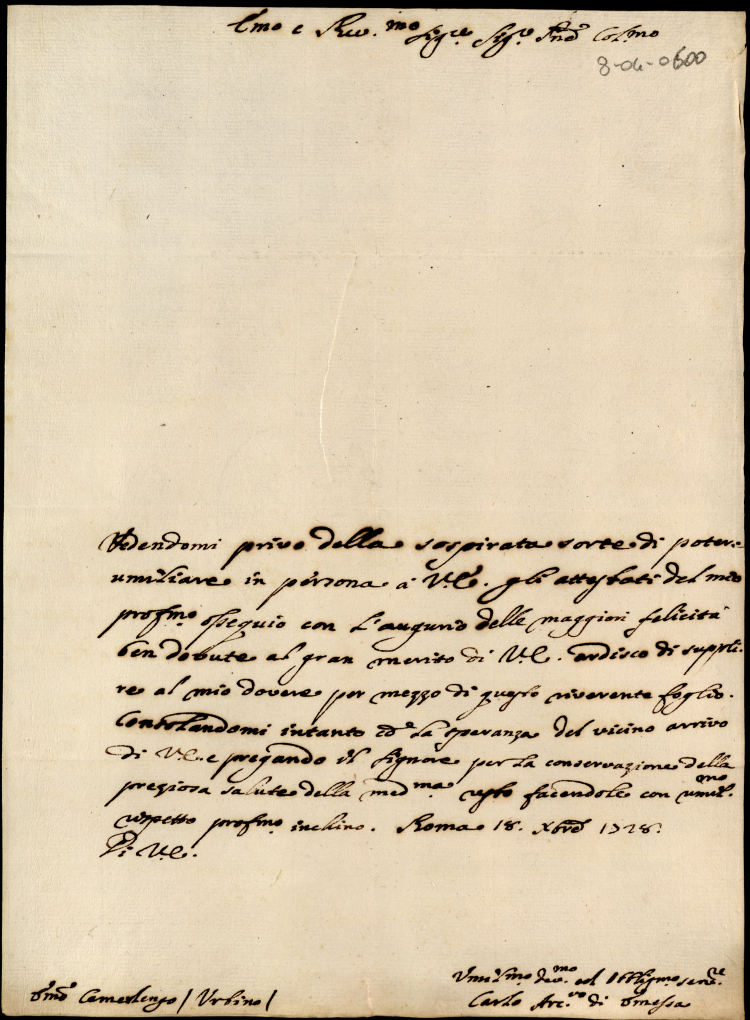 Emo e Rev.mo Sig.re Sig.re Pnē Col.mo
8-04-0600
Vedendomi privo della sospirata sorte di poter
umiliare in persona à V.E. gli attestati del mio
profmo ossequio con l'augurio delle maggiori felicità
ben dovute al gran merito di V.E. ardisco di suppli-
re al mio dovere per mezzo di questo riverente foglio.
Consolandomi intanto co la speranza del vicino arrivo
di V.E. e pregando il Signore per la conservazione della
preziosa salute della medma resto facendole con umil.mo
rispetto profmo inchino. Roma 18. Xbre 1728.
Di V.E.
Umilmo dev.mo ed Obbligmo serv.re
Carlo Arc.vo di Emessa
Camerlengo / Urbino /